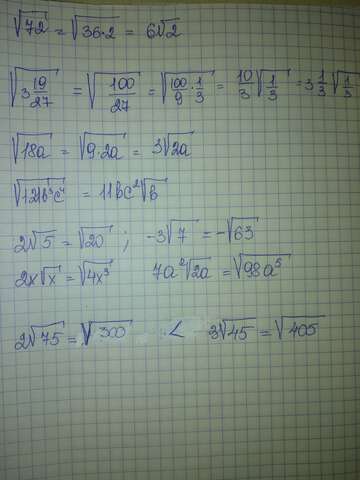 √72 = √36·2 = 6√2
√3 19/27 = √100/27 = √100/9 · 1/3 = 10/3 √1/3 = 3 1/3 √1/3
√18a = √9·2a = 3√2a
√121b³c⁴ = 11bc²√b
2√5 = √20 ; -3√7 = -√63
2x√x = √4x³ 7a²√2a = √98a⁵
2√75 = √300 < 3√45 = √405